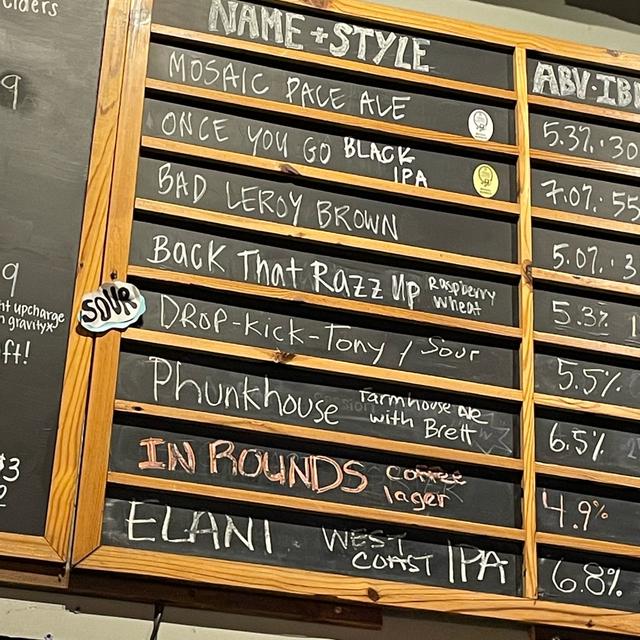 ciders
9
9
ht upcharge
n gravityx
ft!
$3
NAME + STYLE
ABV • IB
MOSAIC PALE ALE
5.3%. 30
ONCE YOU GO BLACK
IPA
7.0%. 55
BAD LEROY BROWN
5.0%. 3
BACK THAT RAZZ UP Raspberry
wheat
5.3%
SOUR
DROP-KICK-TONY / SOUR
5.5%
PHUNKHOUSE Farmhouse Ale
with Brett
6.5%
IN ROUNDS coffee
lager
4.9%
ELANI WEST
COAST IPA
6.8%